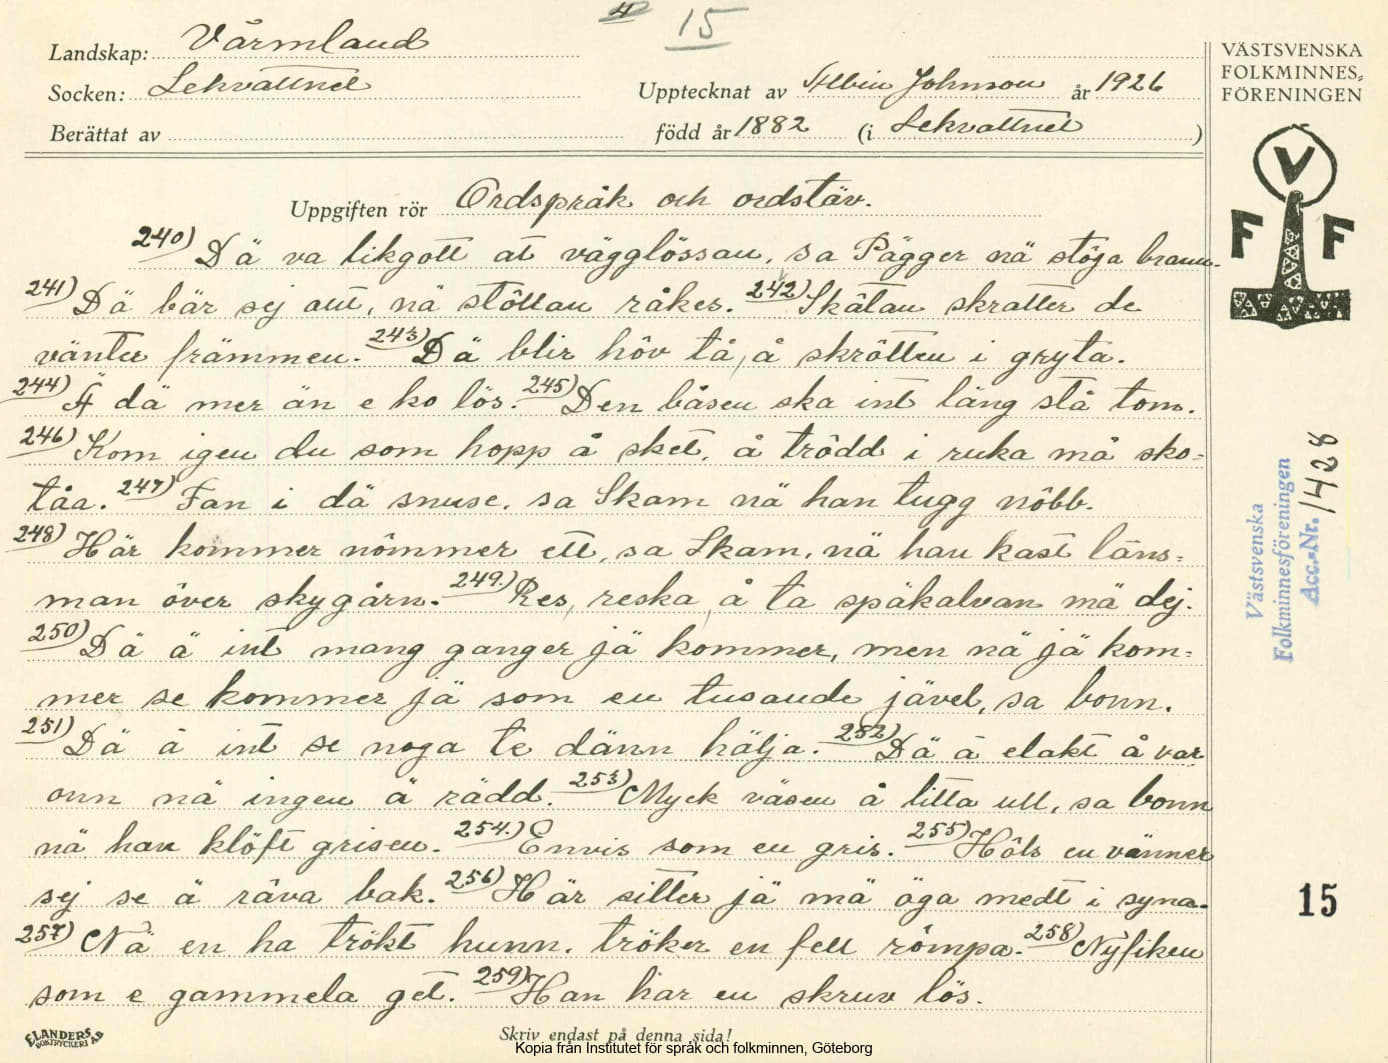 4 15
Landskap: Värmland
Socken: Lekvattnet
Upptecknat av Albin Johnson år 1926
Berättat av
född år 1882 (i Lekvattnet)
VÄSTSVENSKA
FOLKMINNES-
FÖRENINGEN
V
F F
Uppgiften rör Ordspråk och ordstäv.
240) Dä va likgott at vägglössan, sa Pägger nä stöga brann.
241) Dä bär sej aut, nä stöttan råker. 242) Skâtan skratter de
vänter främmen. 243) Dä blir hôv tå, å skrôtten i gryta.
244) Ä dä mer än e ko lös. 245) Den båsen ska int läng stå tom.
246) Kom igen du som hopp å sket, å trôdd i ruka mä sko-
tåa. 247) Fan i dä snuse, sa Skam nä han tugg nôbb.
248) Här kommer nômmer ett, sa Skam, nä han kast läns-
man över skygårn. 249.) Res, reska, å ta späkalvan mä dej.
250) Dä ä int mang ganger jä kommer, men nä jä kom-
mer se kommer jä som en tusande jävel, sa bonn.
251) Dä ä int se noga te dänn hälja. 252) Dä ä elakt å var
onn nä ingen ä rädd. 253) Myck väsen å litta ull, sa bonn
nä han klöft grisen. 254.) Envis som en gris. 255) Hôls en vänner
sej se ä râva bak. 256) Här sitter jä mä öga medt i syna.
257) Nä en ha trökt hunn, tröker en fell rômpa. 258) Nyfiken
som e gammela get. 259) Han har en skruv lös.
Västsvenska
Folkminnesföreningen
Acc.-Nr. 1428
15
ELANDERS
BOKTRYCKERI AB
Skriv endast på denna sida!
Kopia från Institutet för språk och folkminnen, Göteborg